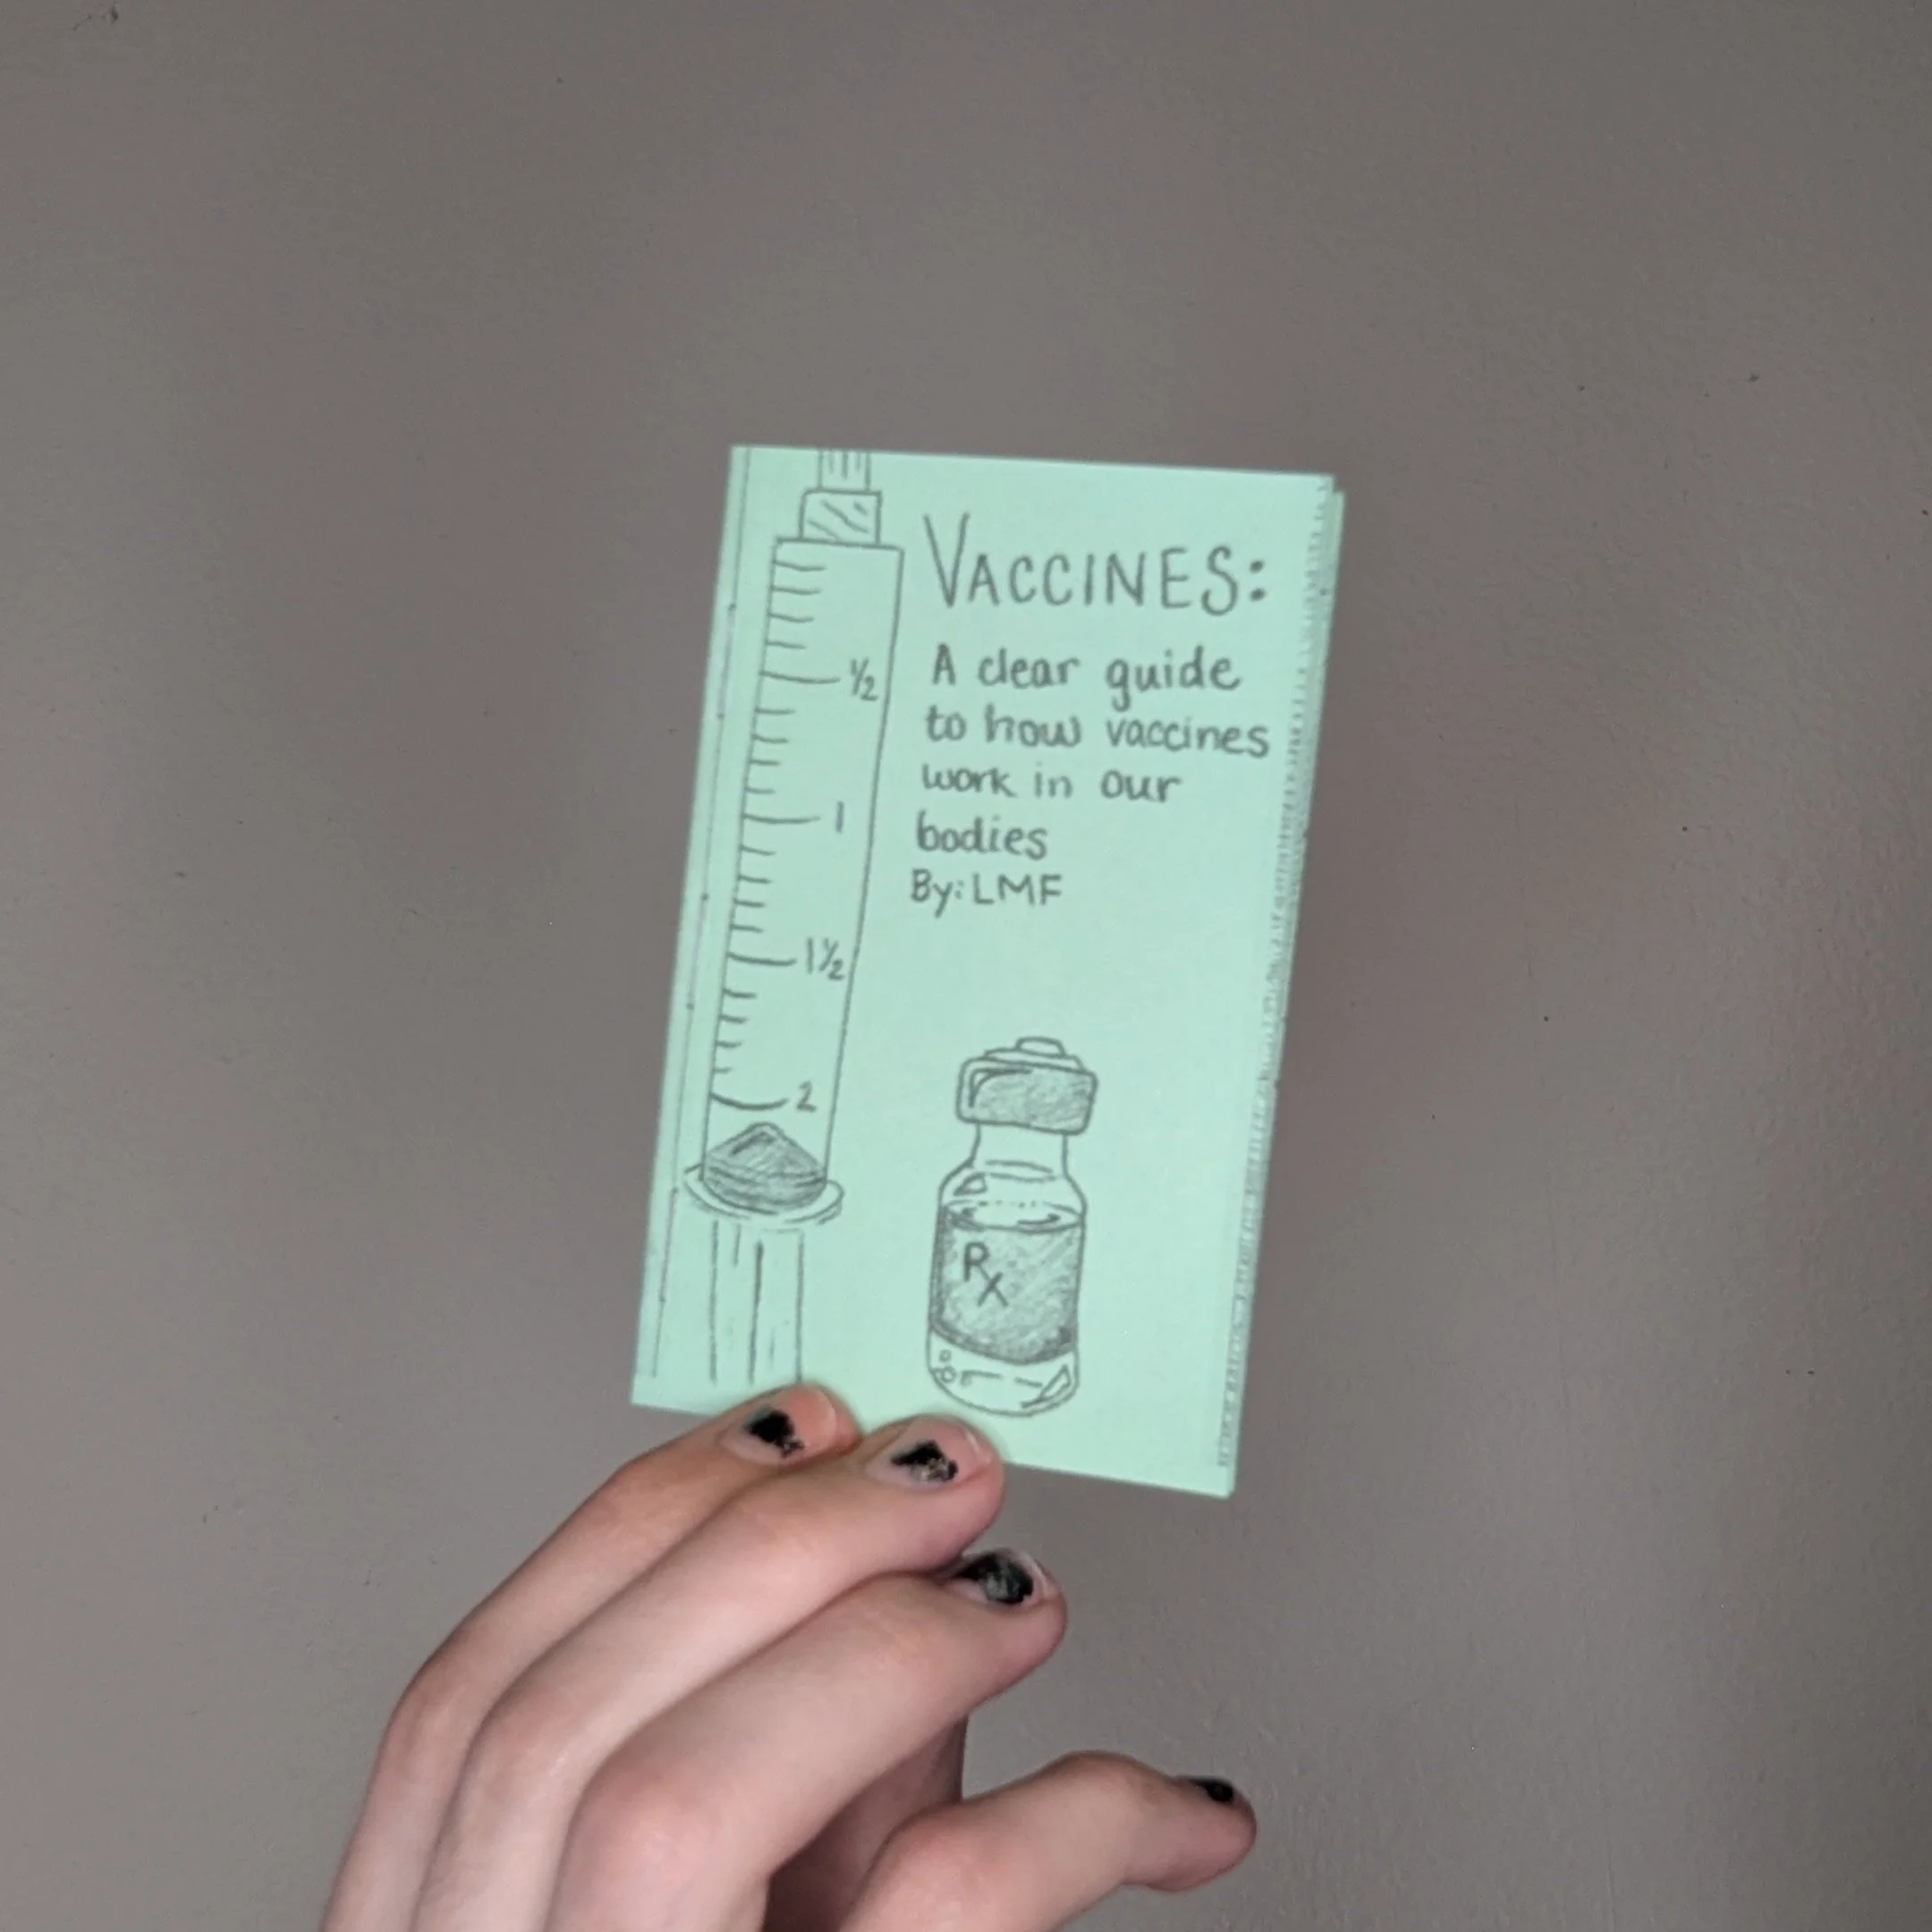 VACCINES:
A clear guide
to how vaccines
work in our
bodies
By: LMF
½
1
1½
2
Rx